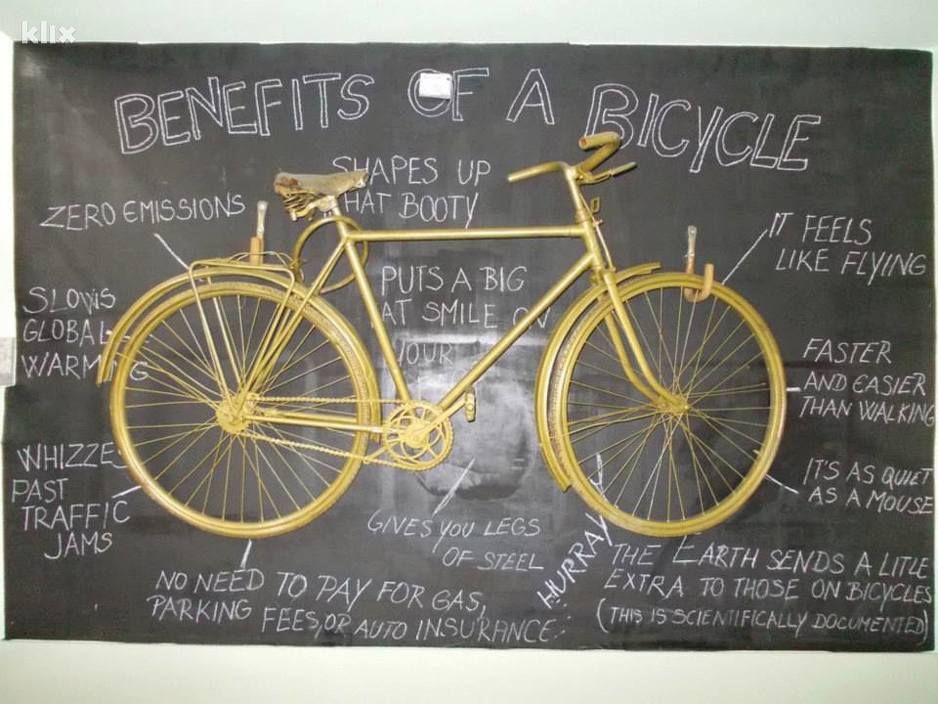 klix
BENEFITS OF A BICYCLE
SHAPES UP
HAT BOOTY
ZERO EMISSIONS
IT FEELS
LIKE FLYING
PUTS A BIG
AT SMILE ON
YOUR
SLOWS
GLOBAL
WARMING
FASTER
AND EASIER
THAN WALKING
WHIZZE
PAST
TRAFFIC
JAMS
IT'S AS QUIET
AS A MOUSE
GIVES YOU LEGS
OF STEEL
HURRAY
NO NEED TO PAY FOR GAS,
PARKING FEES, OR AUTO INSURANCE
THE EARTH SENDS A LITLE
EXTRA TO THOSE ON BICYCLES
(THIS IS SCIENTIFICALLY DOCUMENTED)